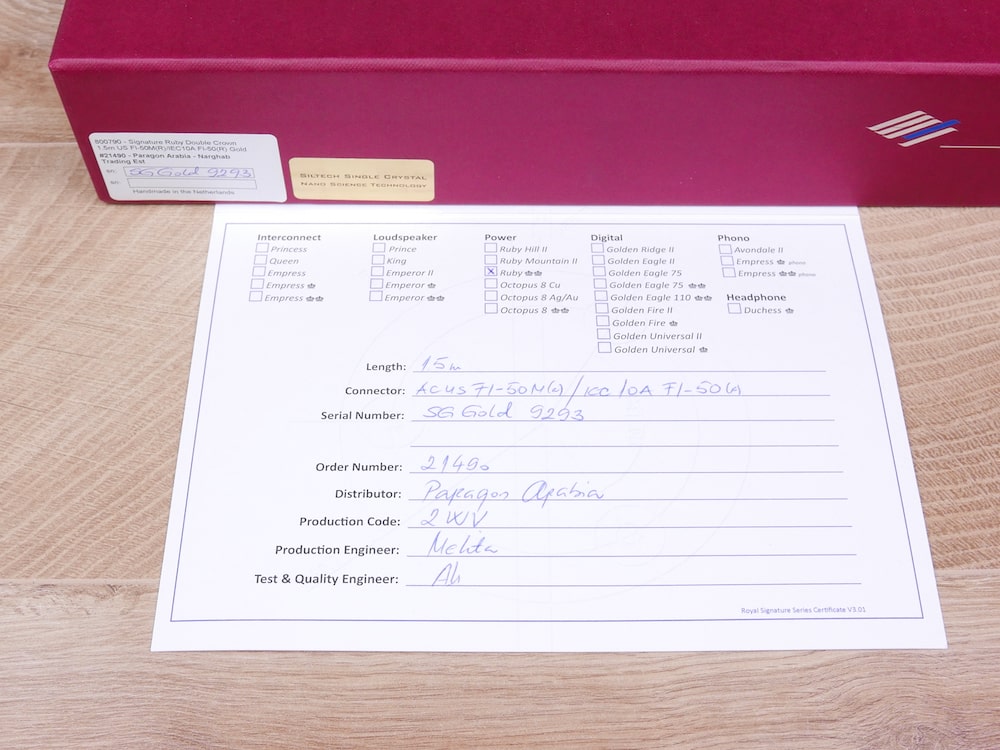 800790 - Signature Ruby Double Crown
1.5m US FI-50M(R)/IEC10A FI-50(R) Gold
#21490 - Paragon Arabia - Narghab
Trading Est
SG Gold 9293
Handmade in the Netherlands
SILTECH SINGLE CRYSTAL
NANO SCIENCE TECHNOLOGY
Interconnect
Princess
Queen
Empress
Empress
Empress
Loudspeaker
Prince
King
Emperor II
Emperor
Emperor
Power
Ruby Hill II
Ruby Mountain II
X Ruby
Octopus 8 Cu
Octopus 8 Ag/Au
Octopus 8
Digital
Golden Ridge II
Golden Eagle II
Golden Eagle 75
Golden Eagle 75
Golden Eagle 110
Golden Fire II
Golden Fire
Golden Universal II
Golden Universal
Phono
Avondale II
Empress phono
Empress phono
Headphone
Duchess
Length: 1.5m
Connector: AC US FI-50M(R) / IEC 10A FI-50(R)
Serial Number: SG Gold 9293
Order Number: 21490
Distributor: Paragon Arabia
Production Code: 2WV
Production Engineer:
Test & Quality Engineer:
Royal Signature Series Certificate V3.01